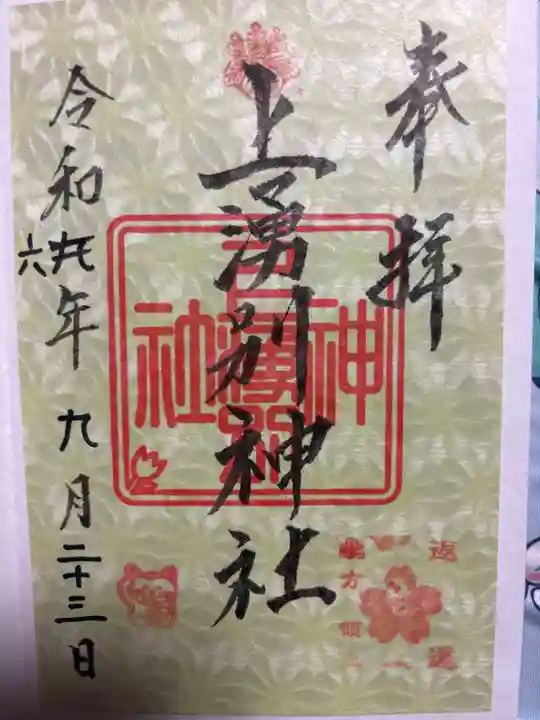 奉拝
上湧別神社
令和六年九月二十三日
神社